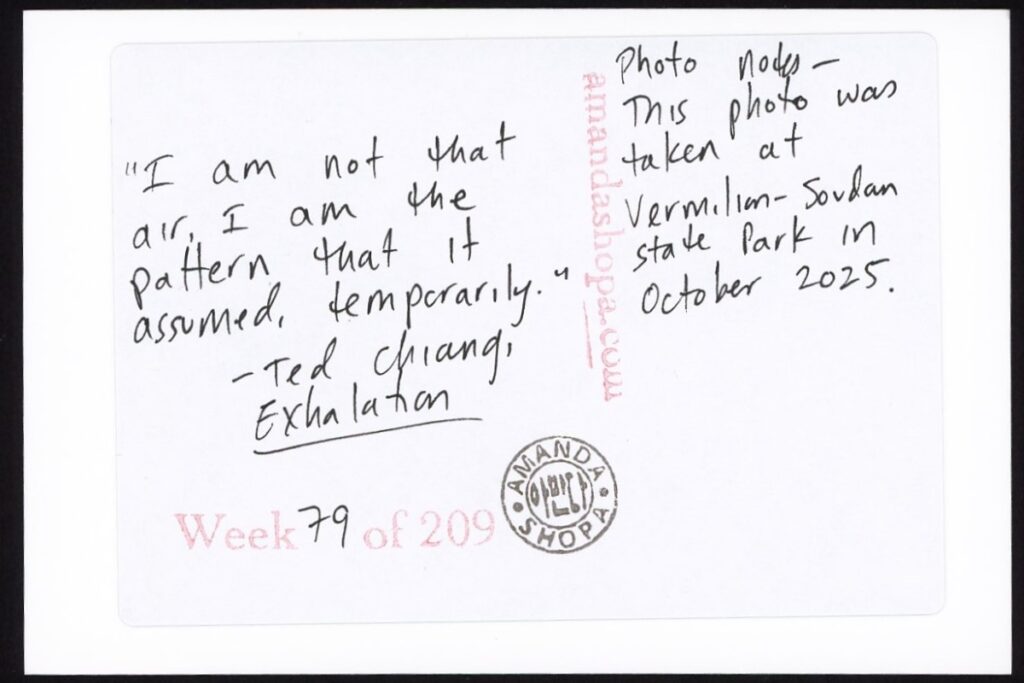 "I am not that
air, I am the
pattern that it
assumed, temporarily."
- Ted Chiang,
Exhalation
Week 79 of 209
amandashopa.com
Photo notes -
This photo was
taken at
Vermilion-Soudan
state Park in
October 2025.
AMANDA
아만다
SHOPA